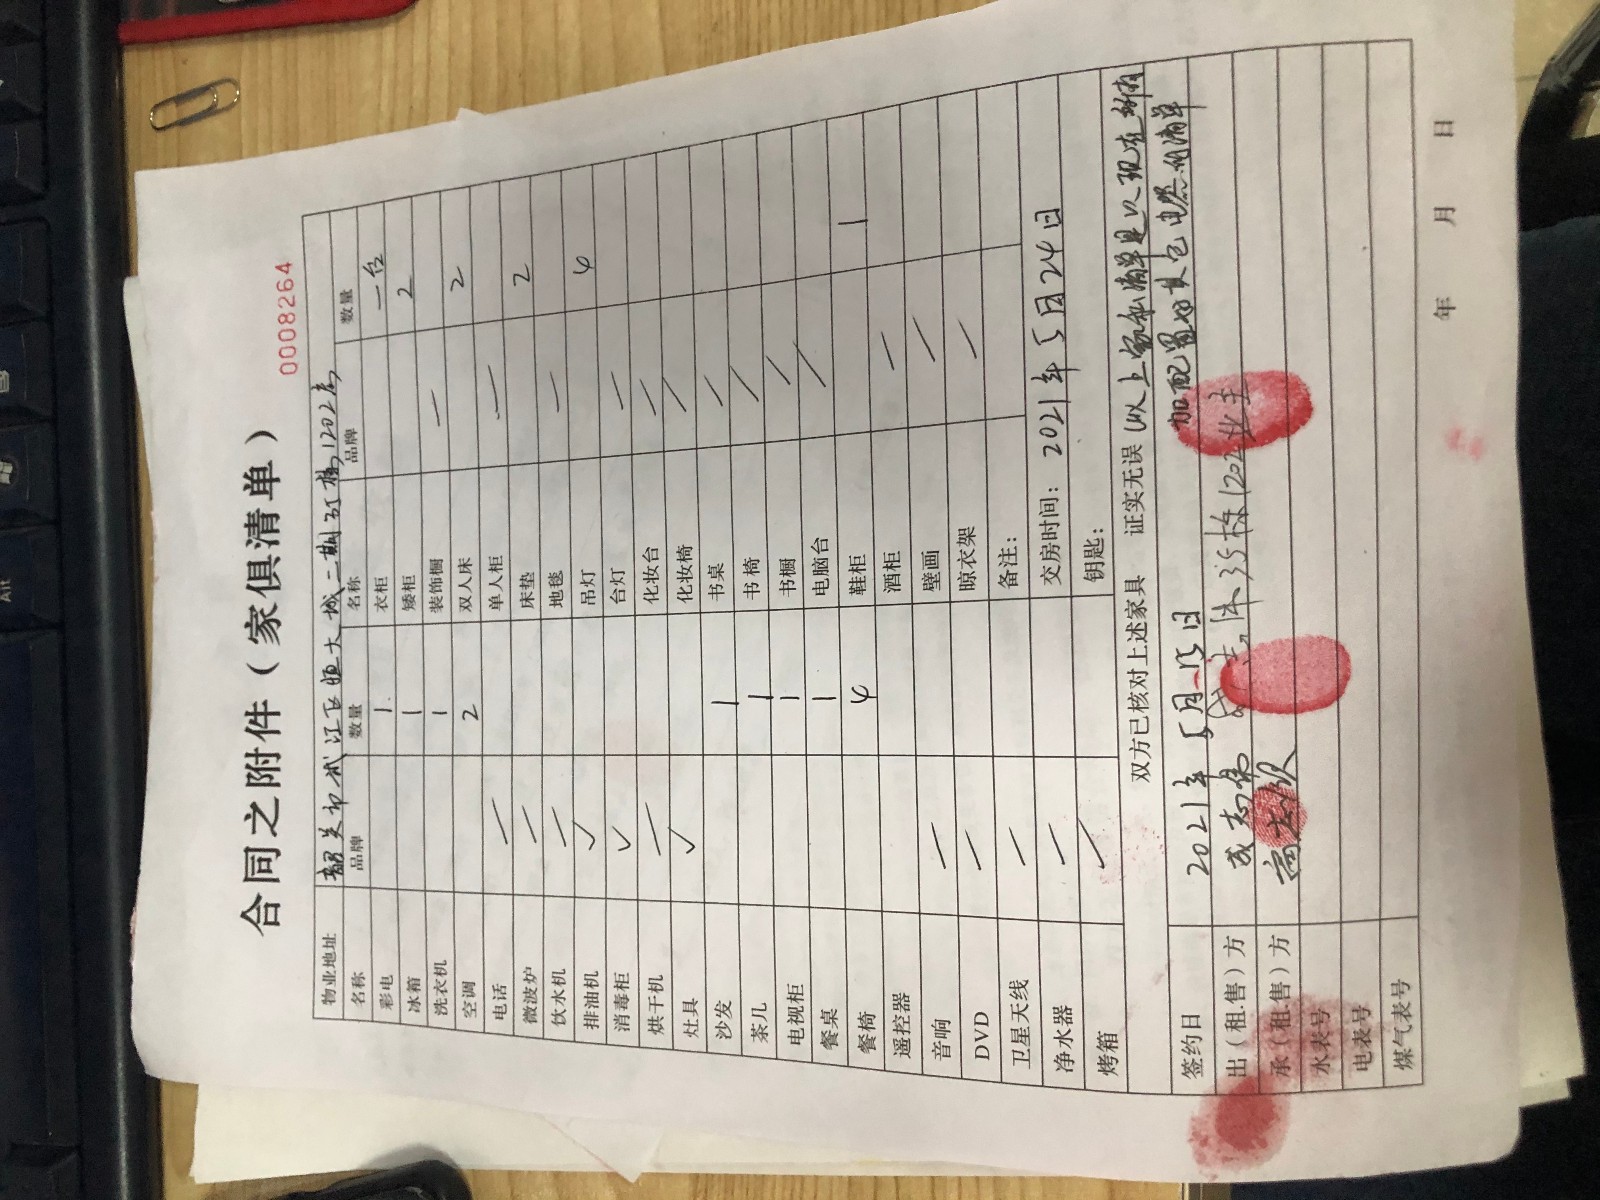 0008264
合同之附件（家俱清单）
物业地址 韶关市 江区恒大城二期35栋1202房
名称 品牌 数量 名称 品牌 数量
彩电 1 衣柜 一台
冰箱 1 矮柜 2
洗衣机 1 装饰橱
空调 2 双人床 2
电话 单人柜
微波炉 床垫 2
饮水机 地毯
排油机 ✓ 吊灯 4
消毒柜 ✓ 台灯
烘干机 化妆台
灶具 ✓ 化妆椅
沙发 1 书桌
茶几 1 书椅
电视柜 1 书橱
餐桌 1 电脑台
餐椅 4 鞋柜 1
遥控器 酒柜
音响 壁画
DVD 晾衣架
卫星天线 备注：
净水器 交房时间：2021年5月24日
烤箱 钥匙：
双方已核对上述家具 证实无误 以上家私清单是以现在
签约日 2021年5月15日 加配置好其它电器的清单
出（租.售）方 35栋1202业主
承（租.售）方
水表号
电表号
煤气表号
年 月 日
Alt